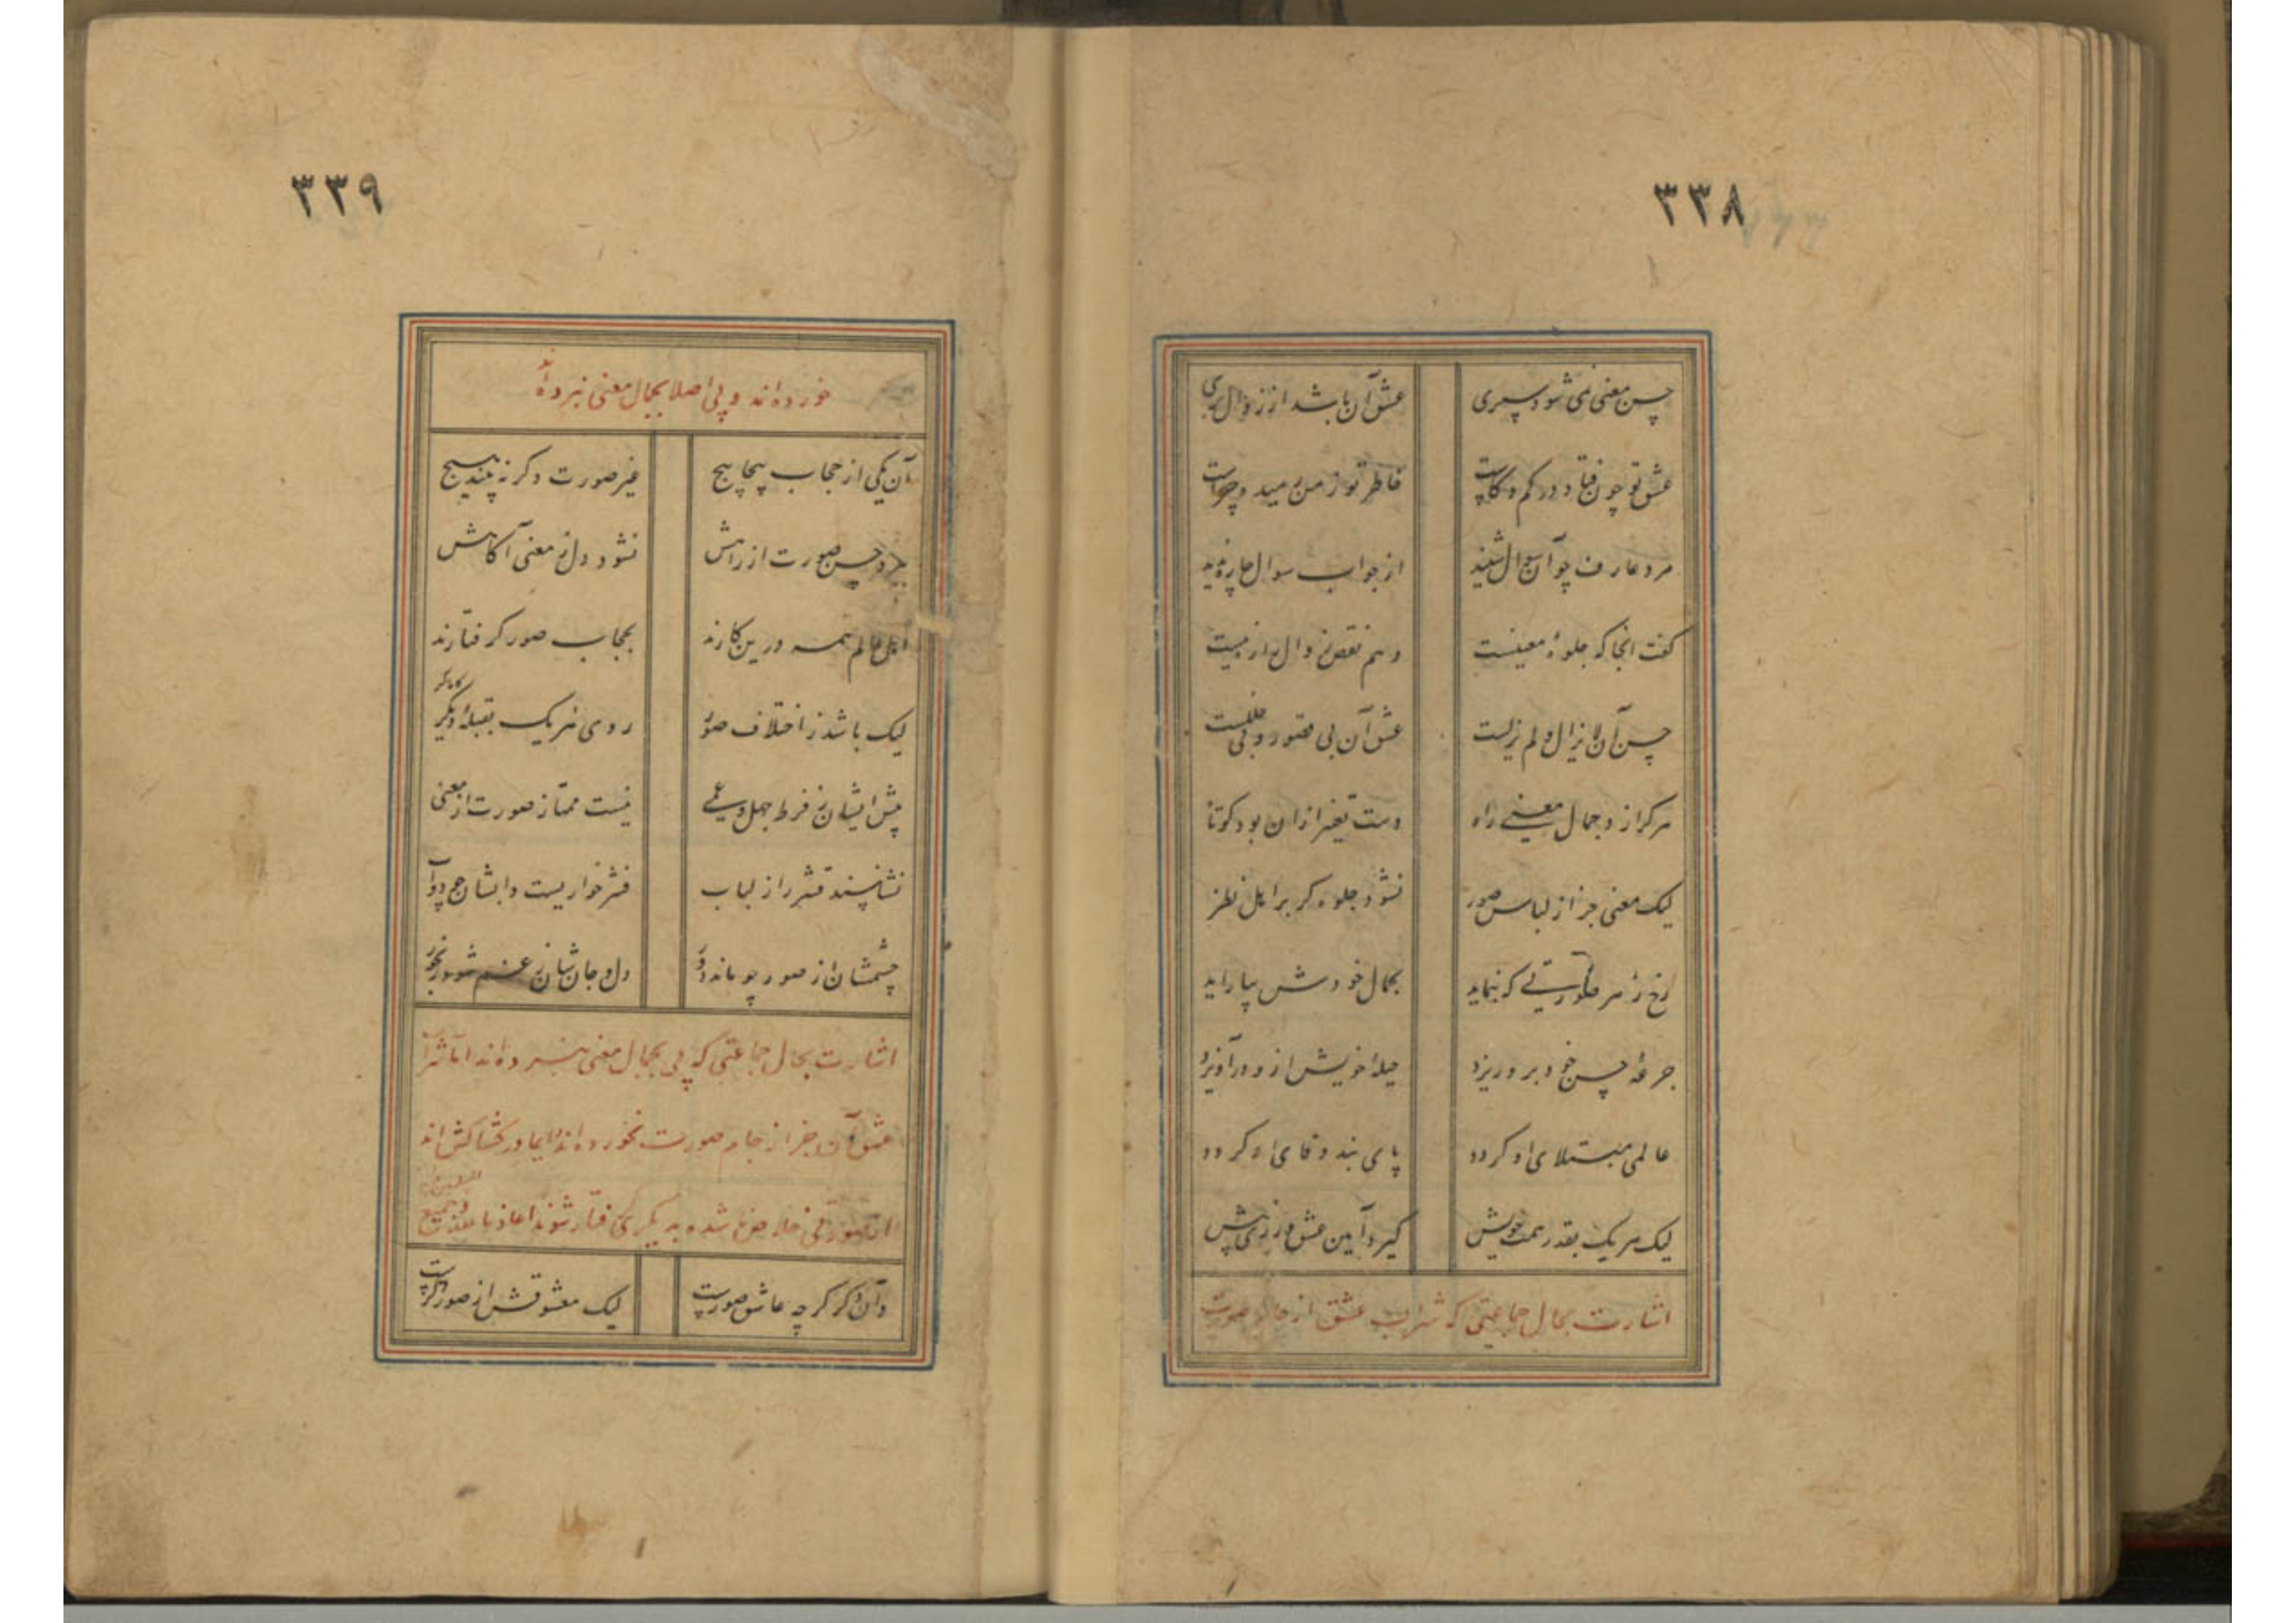 ۳۳۸
حسن معنی نمی شود سپری عشق آن باشد از زوال بری
عشق تو چون فتاد در کم و کاست خاطر تو ز من رمید و چراست
مرد عارف چو آن سوال شنید از جواب سوال چاره ندید
گفت انجا که جلوهٔ معنیست وهم نقص و زوال را ره نیست
حسن آن لایزال و لم یزلیست عشق آن بی قصور و بی خللیست
هر کرا زد جمال معنی راه دست تغیر ازان بود کوتاه
لیک معنی جز از لباس صور نشود جلوه گر بر اهل نظر
رخ ز هر صورتی که بنماید بجمال خودش بیاراید
جرعهٔ حسن خود برو ریزد حیلهٔ خویش ازو در آویزد
عالمی مبتلای او گردد پای بند وفای او گردد
لیک هر یک بقدر همت خویش گیرد آیین عشق ورزی پیش
اشارت بحال جماعتی که شراب عشق از جام صورت
۳۳۹
خورده اند و پی اصلا بجمال معنی نبرده اند
آن یکی از حجاب پیچاپیچ غیر صورت دگر نه بیند هیچ
برد حسن صورت از راهش نشود دل ز معنی آگاهش
اهل عالم همه درین کارند بحجاب صور گرفتارند
لیک باشد ز اختلاف صور روی هر یک بقبلهٔ دیگر
پیش ایشان ز فرط جهل و عمی نیست ممتاز صورت از معنی
نشناسند قشر را ز لباب قشر خواریست دابشان چو دواب
چشمشان از صور چو ماند دور دل و جان شان ز غم شود رنجور
اشارت بحال جماعتی که پی بجمال معنی برده اند اما شراب
عشق آن جز از جام صورت نخورده اند دایما در کشاکش اند
از صورتی خلاص شده بدیگری گرفتار شوند اعاذنا الله و جمیع المسلمین
وآن دگر گرچه عاشق صورست لیک معشوقش از صور دگرست